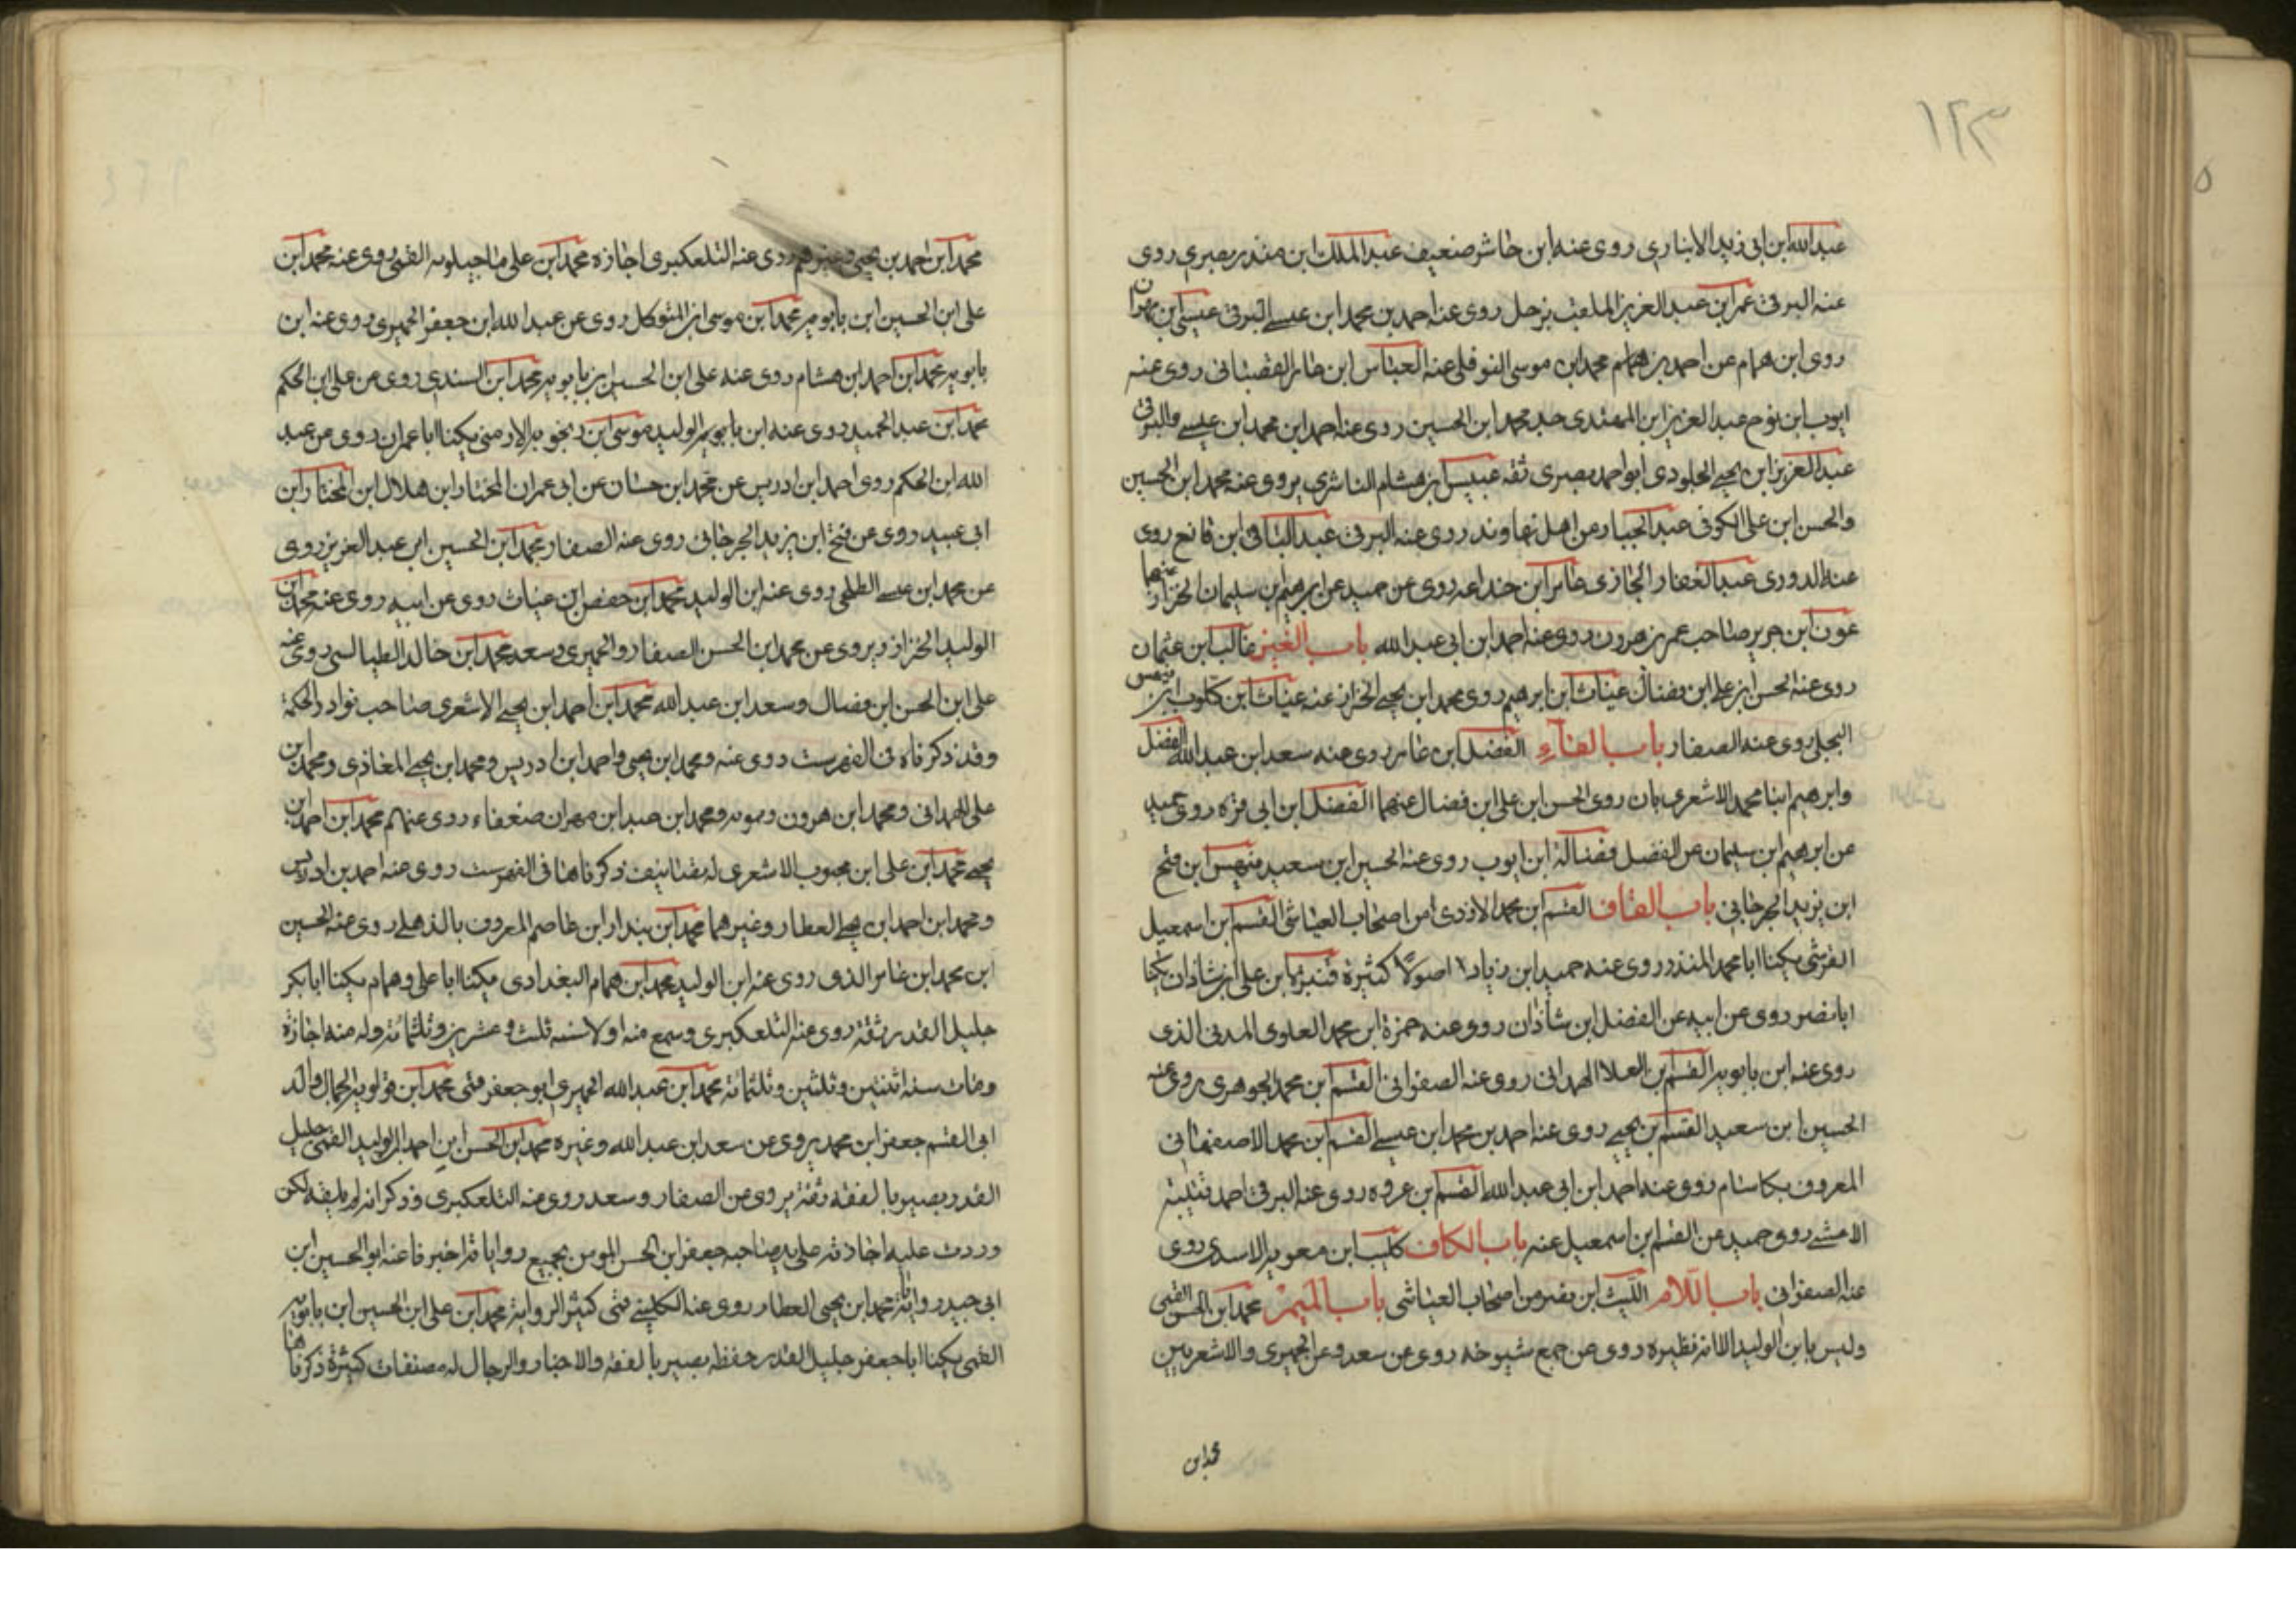 ١٢٣
عبدالله ابن ابى زيد الانبارى روى عنه ابن حاشر ضعيف عبد الملك ابن منذر بصرى روى
عنه البرقى عمر ابن عبد العزيز الملقب بزحل روى عنه احمد بن محمد ابن عيسى البرقى عيسى ابن مهران
روى ابن همام عن احمد بن محمد ابن موسى النوفلى عنه العباس ابن عامر القصبانى روى عنه
ايوب ابن نوح عبد العزيز ابن المهتدى جد محمد ابن الحسين روى عنه احمد ابن محمد ابن عيسى والبرقى
عبد العزيز ابن يحيى الجلودى ابو احمد بصرى ثقه عبيس ابن هشام الناشرى يروى عنه محمد ابن الحسين
والحسن ابن على الكوفى عبد الجبار من اهل نهاوند روى عنه البرقى عبد الباقى ابن قانع روى
عنه الدورى عبد الغفار الجازى عامر ابن جذاعه روى عن حميد عن ابرهيم بن سليمان الخزاز عنهما
عون ابن جرير صاحب عمر بن هرون روى عنه احمد ابن ابى عبد الله باب الغين غالب ابن عثمان
روى عنه الحسن ابن على ابن فضال غياث ابن ابرهيم روى محمد ابن يحيى الخزاز عنه غياث ابن كلوب ابن
البجلى روى عنه الصفار باب الفآء الفضل ابن عامر روى عنه سعد ابن عبد الله الفضل
وابرهيم ابنا محمد الاشعريان روى الحسن ابن على ابن فضال عنهما الفضل ابن ابى قره روى حميد
عن ابرهيم ابن سليمان عن الفضل فضالة ابن ايوب روى عنه الحسين ابن سعيد فتح
ابن يزيد الجرجانى باب القاف القسم ابن محمد الازدى من اصحاب العياشى القسم ابن اسمعيل
القرشى يكنا ابا محمد المنذر روى عنه حميد ابن زياد اصولاً كثيرة قنبرة ابن على ابن شاذان يكنا
ابا نصر روى عن ابيه عن الفضل ابن شاذان روى عنه حمزة ابن محمد العلوى المدنى الذى
روى عنه ابن بابويه القسم بن العلا الهمدانى روى عنه الصفوانى القسم ابن محمد الجوهرى روى عنه
الحسين ابن سعيد القسم بن يحيى روى عنه احمد بن محمد ابن عيسى القسم ابن محمد الاصفهانى
المعروف بكاسام روى عنه احمد ابن ابى عبد الله القسم بن عروه روى عنه البرقى احمد قتيبة
الاعشى روى حميد عن القسم ابن اسمعيل عنه باب الكاف كليب ابن معويه الاسدى روى
عنه الصفوانى باب اللام الليث ابن نصر من اصحاب العياشى باب الميم محمد ابن الحسن القمى
وليس بابن الوليد الا انه نظيره روى عن جميع شيوخه روى عن سعد وعن الحميرى والاشعريين
محمد ابن
محمد ابن احمد بن يحيى وغيرهم روى عنه التلعكبرى اجازه محمد ابن على ماجيلويه القمى روى عنه محمد ابن
على ابن الحسين ابن بابويه محمد ابن موسى ابن المتوكل روى عن عبد الله ابن جعفر الحميرى روى عنه ابن
بابويه محمد ابن احمد ابن هشام روى عنه على ابن الحسين ابن بابويه محمد ابن السندى روى عن على ابن الحكم
محمد ابن عبد الحميد روى عنه ابن بابويه الوليد موسى ابن رنجويه الارمنى يكنا ابا عمران روى عن عبد
الله ابن الحكم روى احمد ابن ادريس عن محمد ابن حسان عن ابى عمران المختار ابن هلال ابن المختار ابن
ابى عبيد روى عن فتح ابن يزيد الجرجانى روى عنه الصفار محمد ابن الحسين ابن عبد العزيز روى
عن محمد ابن عيسى الطلحى روى عنه ابن الوليد محمد ابن حفص ابن غياث روى عن ابيه روى عنه محمد ابن
الوليد الخزاز ويروى عن محمد ابن الحسن الصفار والحميرى وسعد محمد ابن خالد الطيالسى روى عنه
على ابن الحسن ابن فضال وسعد ابن عبد الله محمد ابن احمد ابن يحيى الاشعرى صاحب نوادر الحكمة
وقد ذكرناه فى الفهرست روى عنه ومحمد ابن يحيى واحمد ابن ادريس ومحمد ابن يحيى المعاذى ومحمد ابن
على الهمدانى ومحمد ابن هرون ومحمد ابن عبد ابن مهران ضعفاء روى عنهم محمد ابن احمد ابن
يحيى محمد ابن على ابن محبوب الاشعرى له تصانيف ذكرناها فى الفهرست روى عنه احمد بن ادريس
ومحمد ابن احمد ابن يحيى العطار وغيرهما محمد ابن بندار ابن عاصم المعروف بالذهلى روى عنه الحسين
ابن محمد ابن عامر الذى روى عنه ابن الوليد محمد ابن همام البغدادى يكنا ابا على وهمام يكنا ابا بكر
جليل القدر ثقة روى عنه التلعكبرى وسمع منه اولا سنه ثلث وعشرين وثلثمائة وله منه اجازة
ومات سنه اثنتين وثلثين وثلثمائة محمد ابن عبد الله الحميرى ابو جعفر قمى محمد ابن قولويه الجمال والد
ابى القسم جعفر ابن محمد يروى عن سعد ابن عبد الله وغيره محمد ابن الحسن ابن احمد ابن الوليد القمى جليل
القدر بصير بالفقه ثقة يروى عن الصفار وسعد روى عنه التلعكبرى وذكر انه لم يلقه لكن
وردت عليه اجازته على يد صاحبه جعفر ابن الحسن المومن بجميع رواياته اخبرنا عنه ابو الحسين ابن
ابى جيد رواياته محمد ابن يحيى العطار روى عنه الكلينى قمى كثير الرواية محمد ابن على ابن الحسين ابن بابويه
القمى يكنا ابا جعفر جليل القدر حفظه بصير بالفقه والاخبار والرجال له مصنفات كثيرة ذكرناها